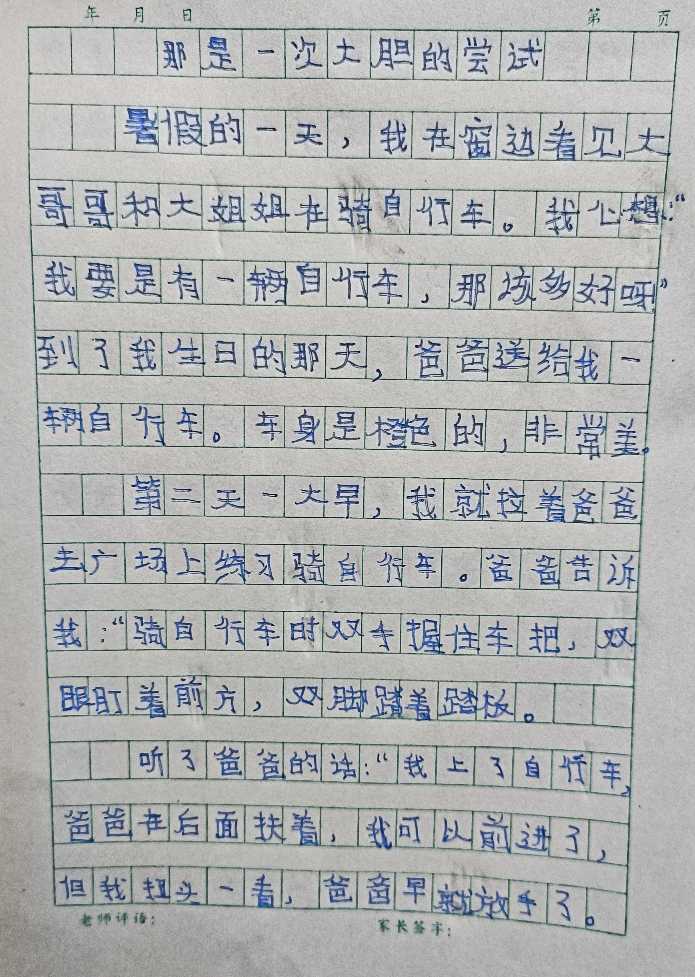 年 月 日 第 页
那是一次大胆的尝试
暑假的一天，我在窗边看见大
哥哥和大姐姐在骑自行车。我心想：“
我要是有一辆自行车，那该多好呀”
到了我生日的那天，爸爸送给我一
辆自行车。车身是橙色的，非常美。
第二天一大早，我就拉着爸爸
去广场上练习骑自行车。爸爸告诉
我：“骑自行车时双手握住车把，双
眼盯着前方，双脚踏着踏板。
听了爸爸的话：“我上了自行车，
爸爸在后面扶着，我可以前进了，
但我扭头一看，爸爸早就放手了。
老师评语： 家长签字：